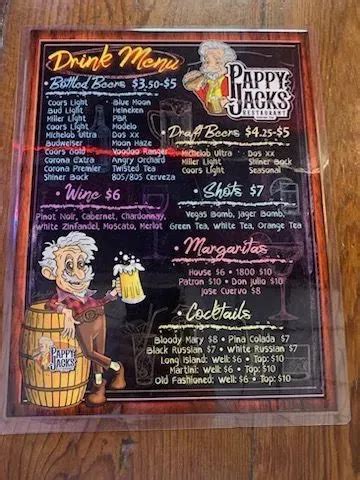 Drink Menu
PAPPY
JACKS
RESTAURANT
• Bottled Beers $3.50-$5
Coors Light • Blue Moon
Bud Light Heineken
Miller Light PBR
Coors Light Modelo
Michelob Ultra Dos XX
Budweiser Moon Haze
Coors Gold Voodoo Ranger
Corona Extra Angry Orchard
Corona Premier Twisted Tea
Shiner Bock 805/805 Cerveza
• Draft Beers $4.25-$5
Michelob Ultra • Dos XX
Miller Light Shiner Bock
Coors Light Seasonal
• Wine $6
Pinot Noir, Cabernet, Chardonnay,
White Zinfandel, Moscato, Merlot
• Shots $7
Vegas Bomb, Jager Bomb,
Green Tea, White Tea, Orange Tea
• Margaritas
House $6 • 1800 $10
Patron $10 • Don Julio $10
Jose Cuervo $8
• Cocktails
Bloody Mary $8 • Pina Colada $7
Black Russian $7 • White Russian $7
Long Island: Well: $6 • Top: $10
Martini: Well: $6 • Top: $10
Old Fashioned: Well: $6 • Top: $10
PAPPY
JACKS